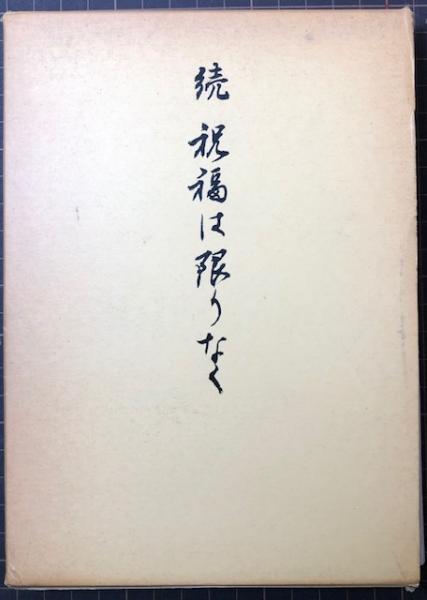 続 祝福は限りなく